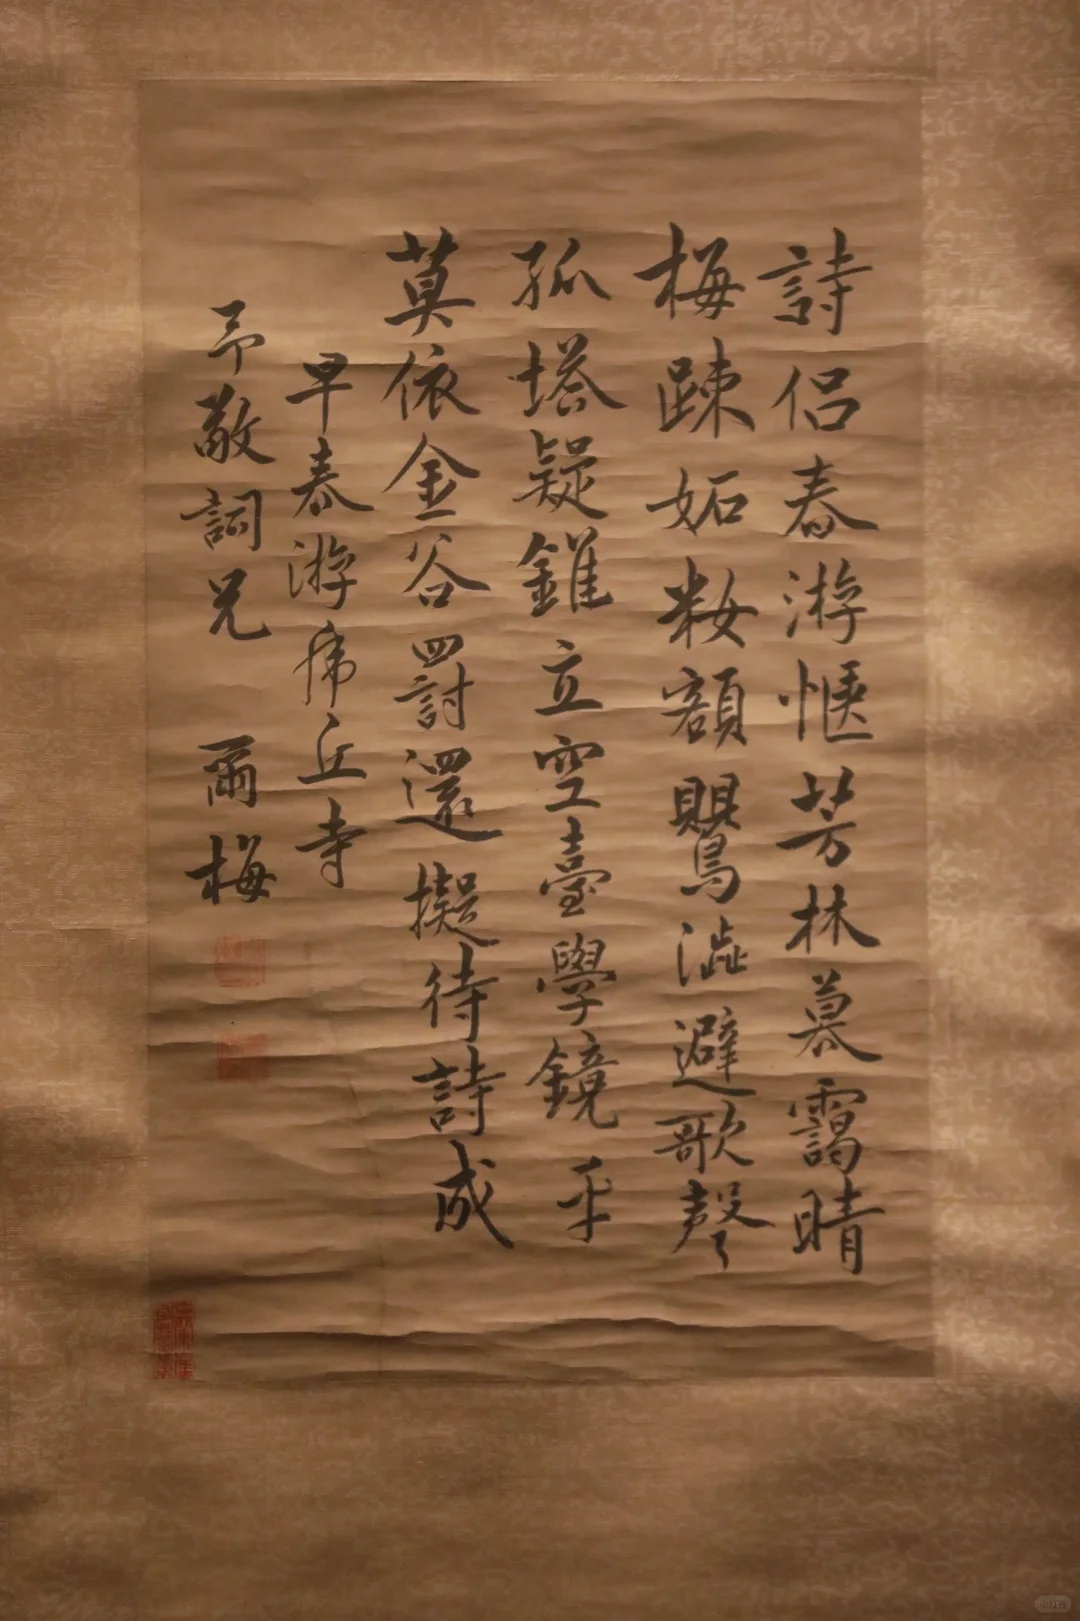 詩侶春游愜芳林暮靄晴
梅踈妬粧額鸎澁避歌聲
孤塔疑錐立空臺學鏡平
莫依金谷罰還擬待詩成
早春游虎丘寺
予敬詞兄 爾梅